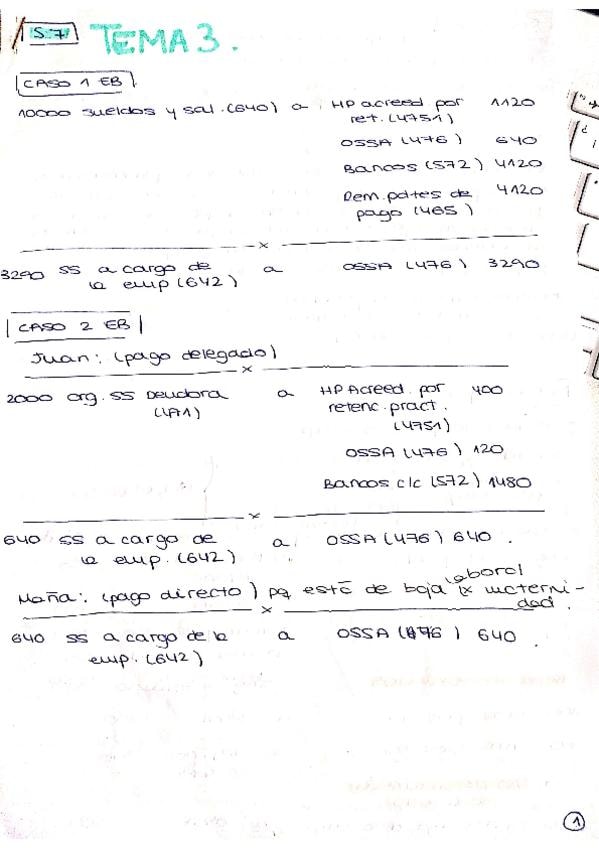 S.7 TEMA 3.
CASO 1 EB
10000 sueldos y sal.(640) a HP acreed por 1120
ret.(4751)
OSSA (476) 640
Bancos (572) 4120
Rem. pdtes de 4120
pago (465)
x
3290 SS a cargo de a OSSA (476) 3290
la emp (642)
CASO 2 EB
Juan: (pago delegado)
x
2000 org. SS Deudora a HP Acreed. por 400
(471) retenc. pract.
(4751)
OSSA (476) 120
Bancos c/c (572) 1480
x
640 SS a cargo de a OSSA (476) 640.
la emp. (642)
María: (pago directo) pq está de baja laboral x materni-
dad.
x
640 SS a cargo de la a OSSA (476) 640.
emp. (642)
1